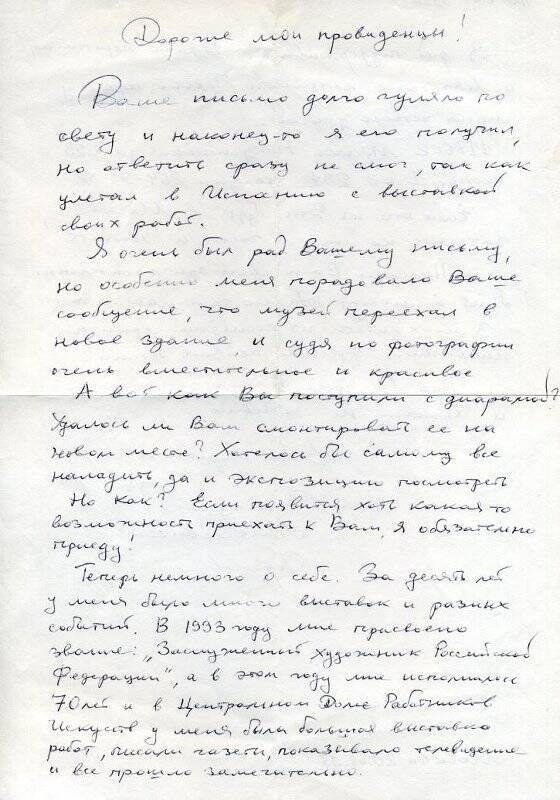 Дорогие мои провиденцы!
Ваше письмо долго гуляло по
свету и наконец-то я его получил,
но ответить сразу не смог, так как
улетал в Испанию с выставкой
своих работ.
Я очень был рад Вашему письму,
но особенно меня порадовало Ваше
сообщение, что музей переехал в
новое здание, и судя по фотографии
очень вместительное и красивое
А вот как Вы поступили с диарамой?
Удалось ли Вам смонтировать ее на
новом месте? Хотелось бы самому все
наладить, да и экспозицию посмотреть
Но как? Если появится хоть какая то
возможность приехать к Вам, я обязательно
приеду!
Теперь немного о себе. За десять лет
у меня было много выставок и разных
событий. В 1993 году мне присвоено
звание: „Заслуженный художник Российской
Федерации", а в этом году мне исполнилось
70 лет и в Центральном Доме Работников
Искусств у меня была большая выставка
работ, писали газеты, показывало телевидение
и все прошло замечательно.